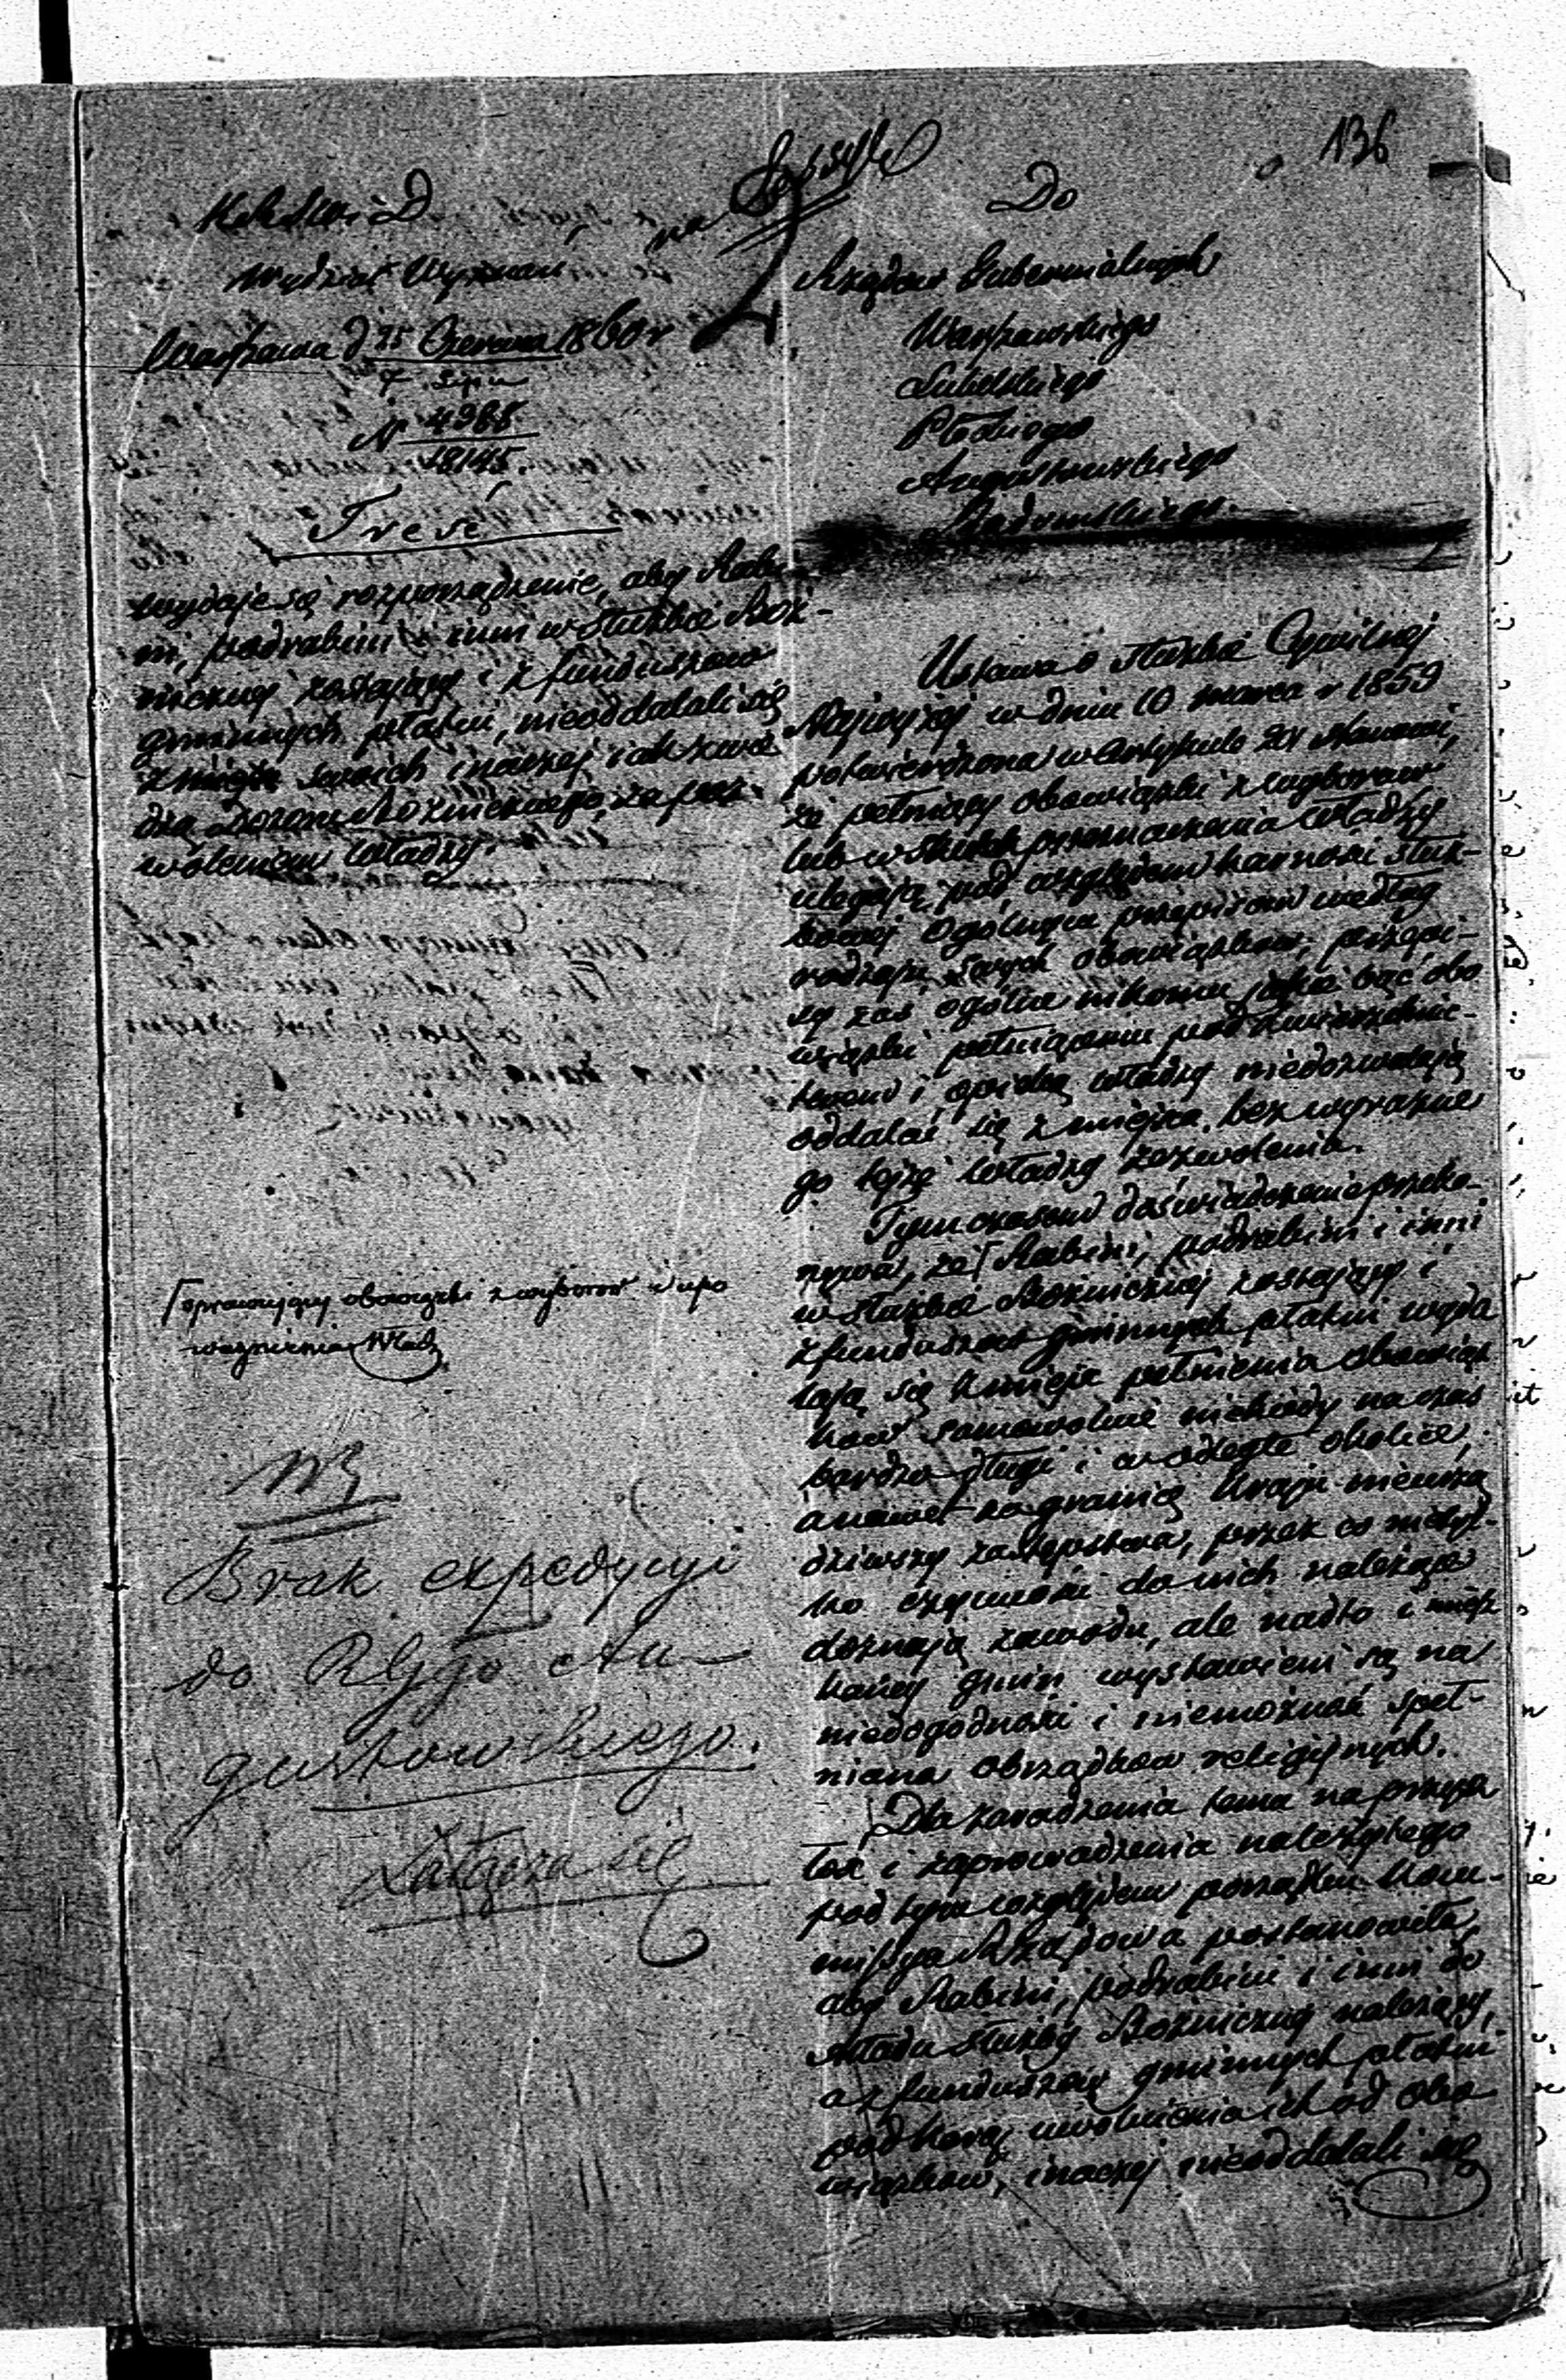 136
Wydział Wyznań
Warszawa d 25 Czerwca 1860 r
7 Lipca
N 4988
18145.
Treść
wydaje się rozporządzenie, aby Rabi-
ni, podrabini i inni w służbie Boż-
niczney zostający i z funduszów
gminnych płatni, nieoddalali się
z miejsc swoich inaczej iak za wie
dzą Dozoru Bożniczego, za poz-
woleniem Władzy.
sprawujący obowiązki z wyborów i upo
ważnienia Władz
NB
Brak expedycyi
do R Ggo Au-
gustowskiego.
Załącza się
Do
Rządów Gubernialnych
Warszawskiego
Lubelskiego
Płockiego
Augustowskiego
Radomskiego.
Ustawa o służbie Cywilnej
Najwyżej w dniu 10 marca r 1859
potwierdzona w Artykule stanowi,
że pełniący obowiązki z wyborów
lub w skutek przeznaczenia Władzy
ulegają pod względem karności służ-
bowej ogólnym przepisom według
rodzaju swych obowiązków, przepi-
sy zaś ogólne nikomu jakie bądź obo
wiązki pełniącemu pod zwierzchnic-
twem i opieką Władzy niedozwalają
oddalać się z miejsca bez wyraźne
go tejże Władzy zezwolenia.
Tymczasem doświadczenie przeko-
nywa, że Rabini, podrabini i inni
w służbie Bożniczney zostający i
z funduszów gminnych płatni wyda
lają się z miejsc pełnienia obowiąz
ków samowolnie niekiedy na czas
bardzo długi i w odległe okolice,
a nawet za granicę Kraju nieurzą
dziwszy zastępstwa, przez co nietyl-
ko czynności do nich należące
doznają zawodu, ale nadto i miesz
kańcy gmin wystawieni są na
niedogodności i niemożność speł-
niania obrządków religijnych.
Dla zaradzenia temu na przysz
łość i zaprowadzenia należytego
pod tym względem porządku Kom-
missya Rządowa postanowiła,
aby Rabini, podrabini i inni do
składu służby Bożniczney należący,
a z funduszów gminnych płatni
pod karą uwolnienia ich od obo
wiązków, inaczej nieoddalali się